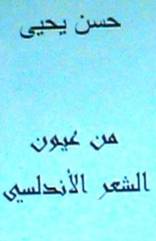 حسن يحيى
من عيون
الشعر الأندلسي